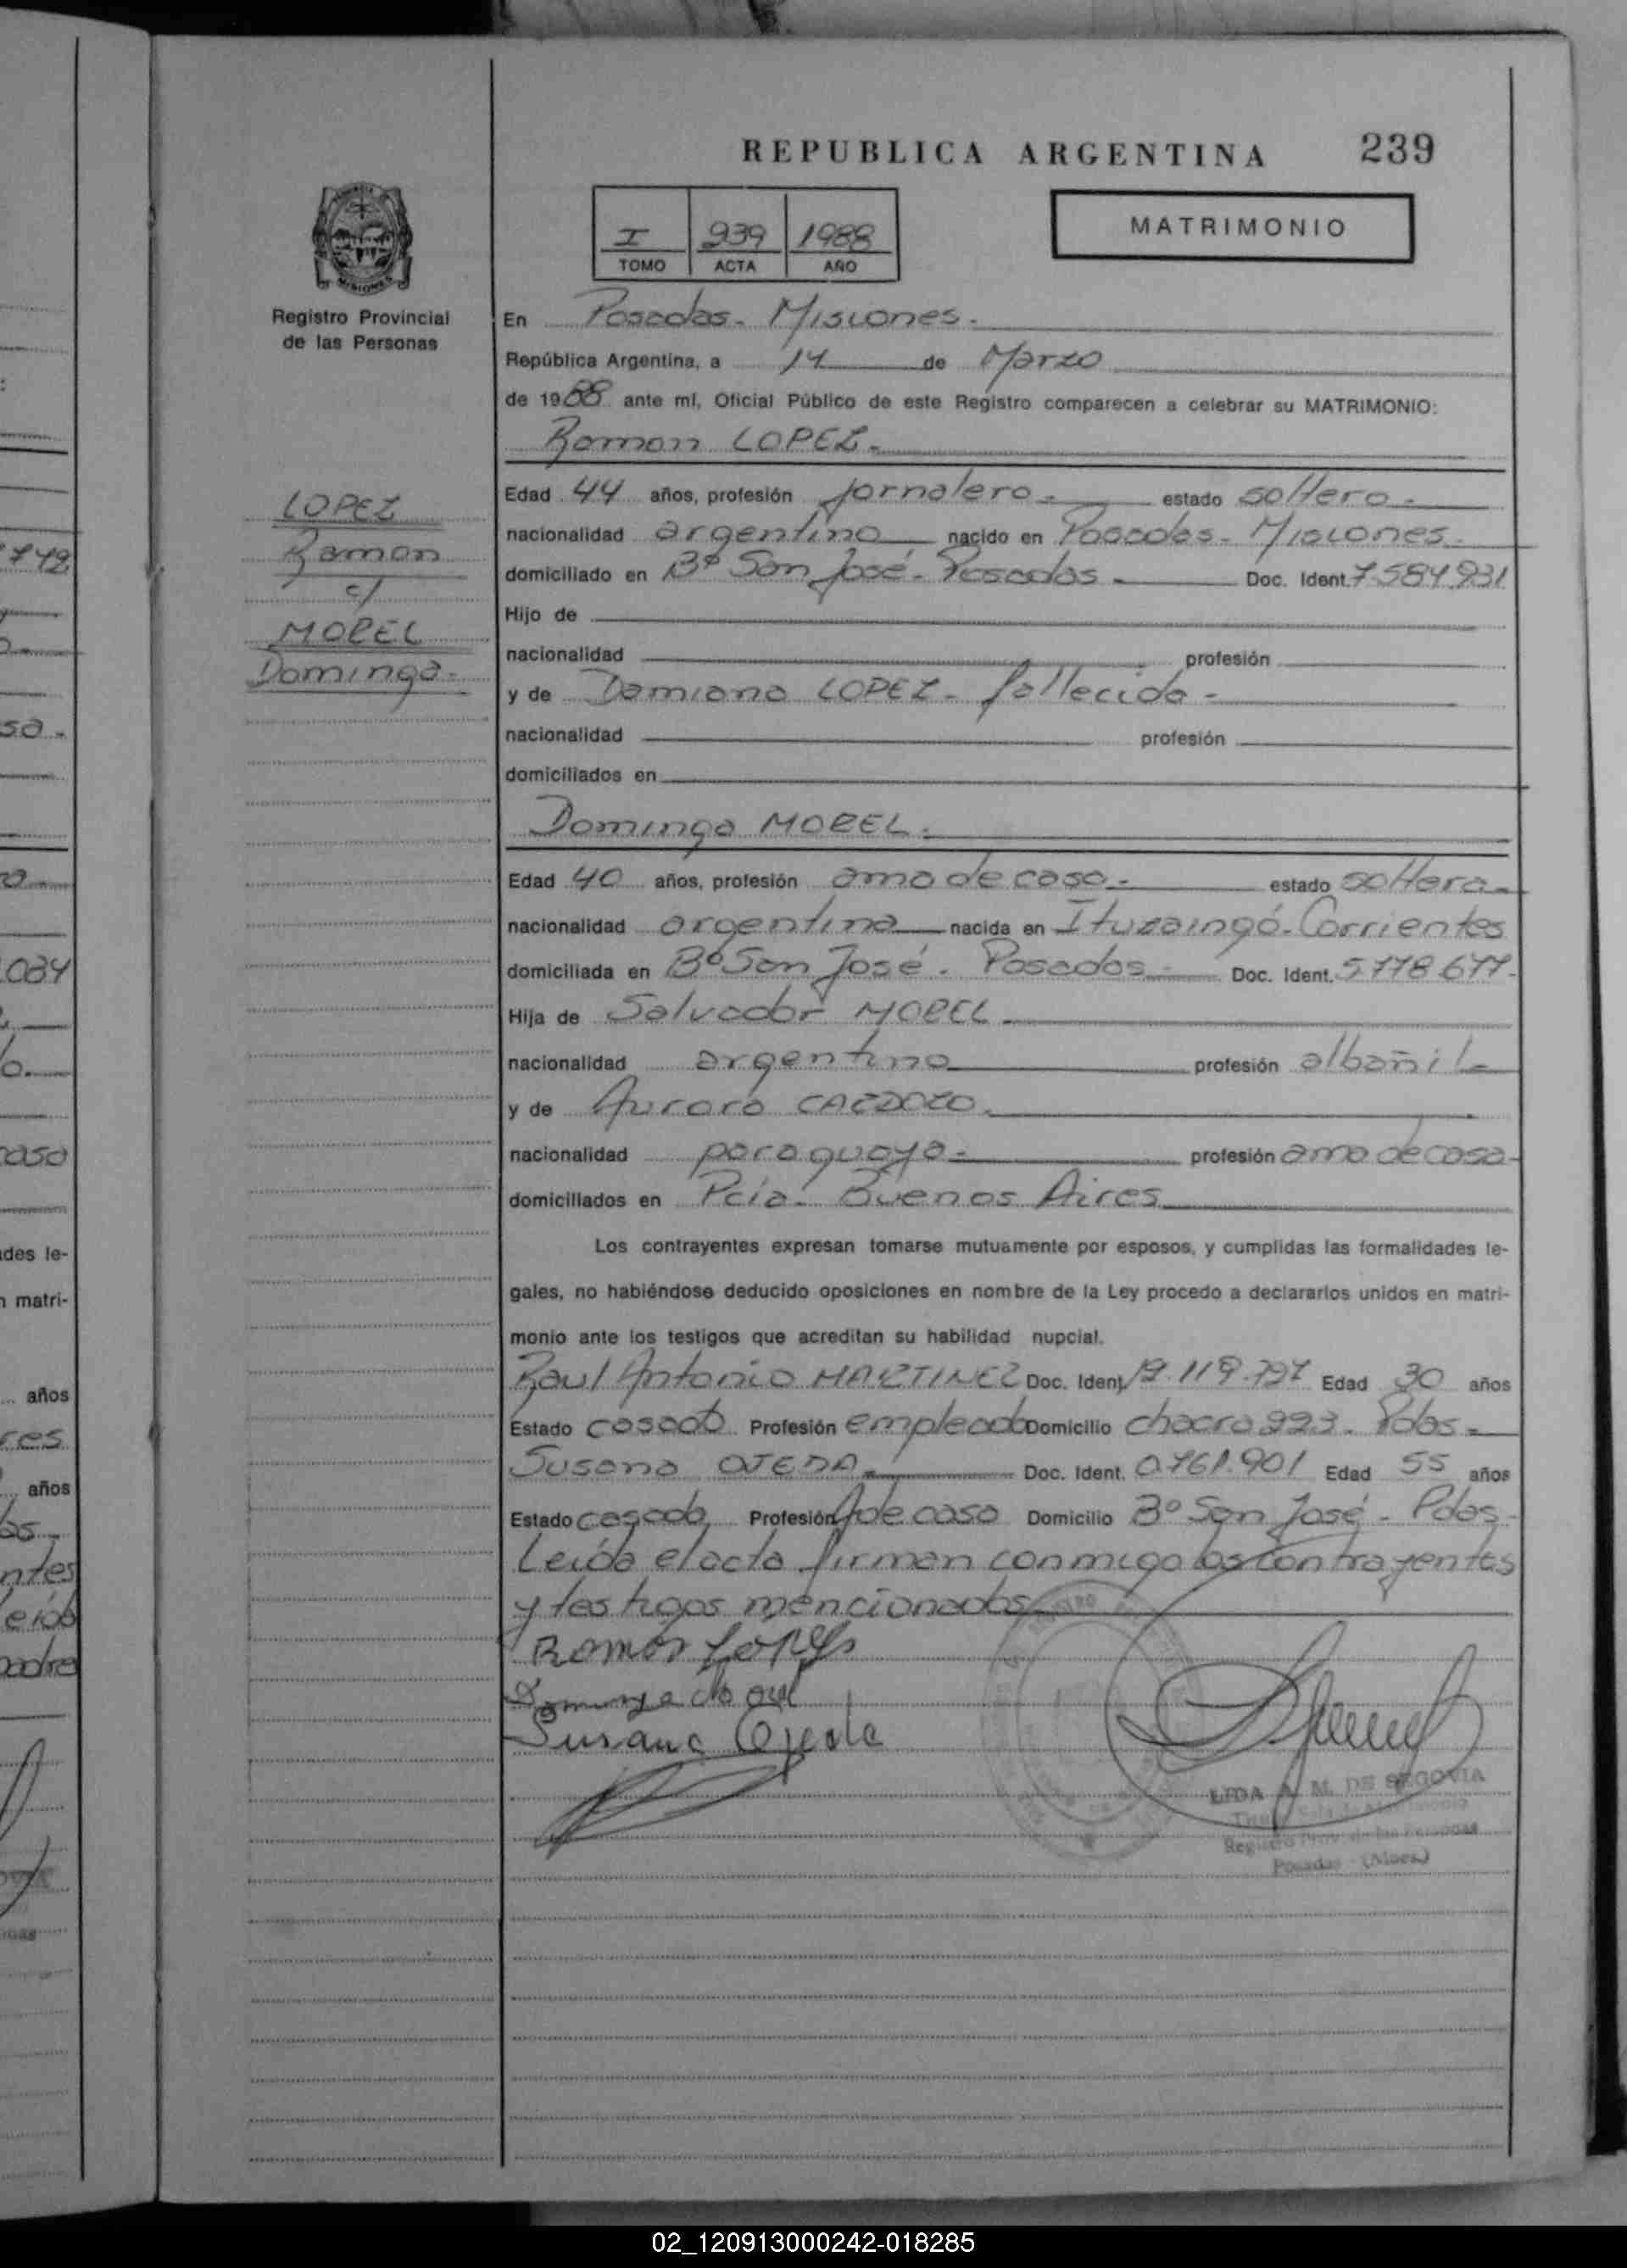 REPUBLICA ARGENTINA 239
MATRIMONIO
I 239 1988
TOMO ACTA AÑO
Registro Provincial
de las Personas
LOPEZ
Ramon
c/
MOREL
Dominga.
En Posadas - Misiones.
República Argentina, a 14 de Marzo
de 1988 ante mí, Oficial Público de este Registro comparecen a celebrar su MATRIMONIO:
Ramon LOPEZ.
Edad 44 años, profesión jornalero - estado soltero -
nacionalidad argentino nacido en Posadas - Misiones.
domiciliado en Bº San José - Posadas - Doc. Ident. 7.584.931
Hijo de
nacionalidad profesión
y de Damiana LOPEZ - fallecida -
nacionalidad profesión
domiciliados en
Dominga MOREL.
Edad 40 años, profesión ama de casa - estado soltera -
nacionalidad argentina nacida en Ituzaingó - Corrientes
domiciliada en Bº San José - Posadas - Doc. Ident. 5.778.677 -
Hija de Salvador MOREL
nacionalidad argentino profesión albañil -
y de Aurora CARDOZO.
nacionalidad paraguaya - profesión ama de casa -
domiciliados en Pcia. Buenos Aires
Los contrayentes expresan tomarse mutuamente por esposos, y cumplidas las formalidades le-
gales, no habiéndose deducido oposiciones en nombre de la Ley procedo a declararlos unidos en matri-
monio ante los testigos que acreditan su habilidad nupcial.
Raul Antonio MARTINEZ Doc. Ident. Edad 30 años
Estado casado Profesión empleado Domicilio chacra 223 - Pdas -
Susana OJEDA - Doc. Ident. 0.761.901 Edad 55 años
Estado casada Profesión A de casa Domicilio Bº San José - Pdas -
Leida el acta firman conmigo los contrayentes
y testigos mencionados
Ramon Lopes
Dominga Morel
Susana Ojeda
LIDA A. M. DE SEGOVIA
Registro Prov. de las Personas
Posadas - (Mnes.)
748
sa -
034
caso
des le-
n matri-
años
res
años
ntes
leida
padre
02_120913000242-018285